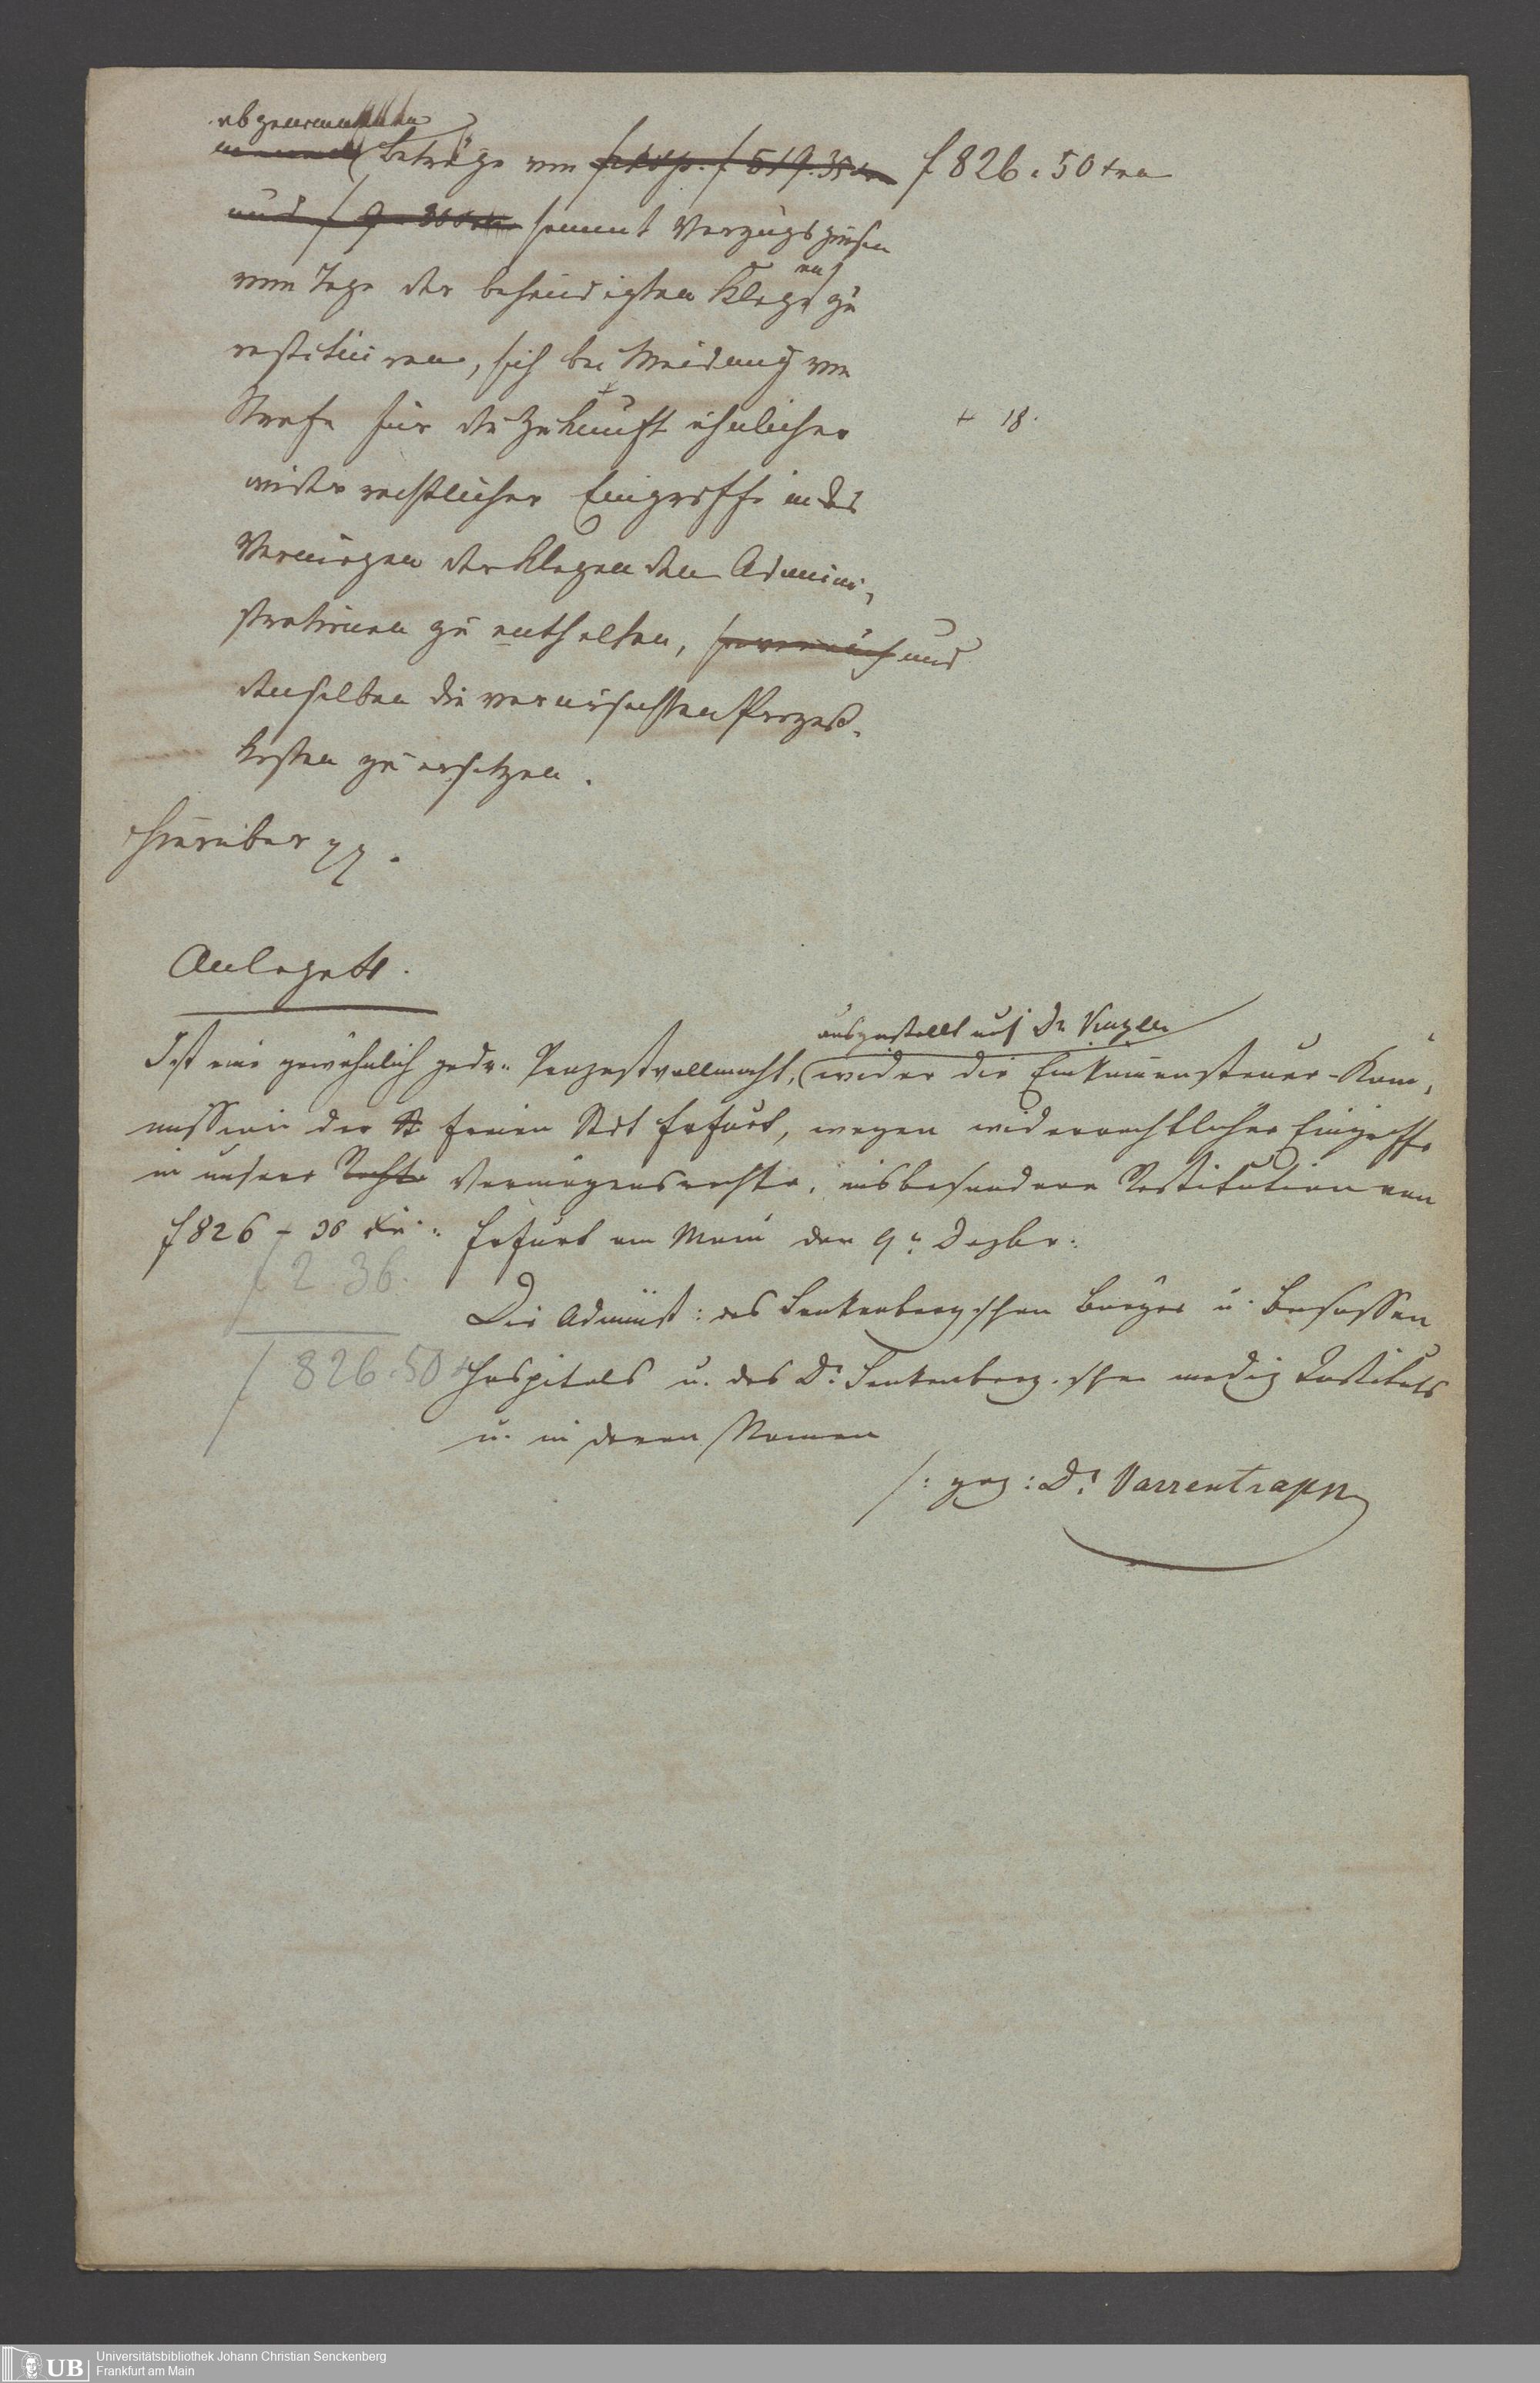 abgenommenen
Beträge von f 519.35 f 826. 50 xrn
und f 9. 30 xrn sammt Verzugszinsen
vom Tage der behändigten Klage an zu
restituiren, sich bei Meidung von
Strafe für die Zukunft ähnlicher + 18.
widerrechtlicher Eingriffe in das
Vermögen der klagenden Admini,
strationen zu enthalten, und
denselben die verursachten Prozeß-
kosten zu ersetzen.
Hierüber pp.
Anlage A.
ausgestellt auf Dr
Ist eine gewöhnlich gedr. Prozeßvollmacht, wider die Einkommensteuer-Kom,
mission der St freien Stdt Frfurt, wegen widerrechtlicher Eingriffe
in unsere Rechte Vermögensrechte, insbesondere Restitution von
f 826 – 36 Xr. Frfurt am Main den 9n Dezbr.
f 2. 36.
Die Administ: des Senkenbergschen Bürger u. Beisassen
f 826. 50 x
Hospitals u. des Dr. Senkenberg.schen mediz Instituts
u. in deren Namen
/: gez: Dr. Varrentrapp
UB
Universitätsbibliothek Johann Christian Senckenberg
Frankfurt am Main